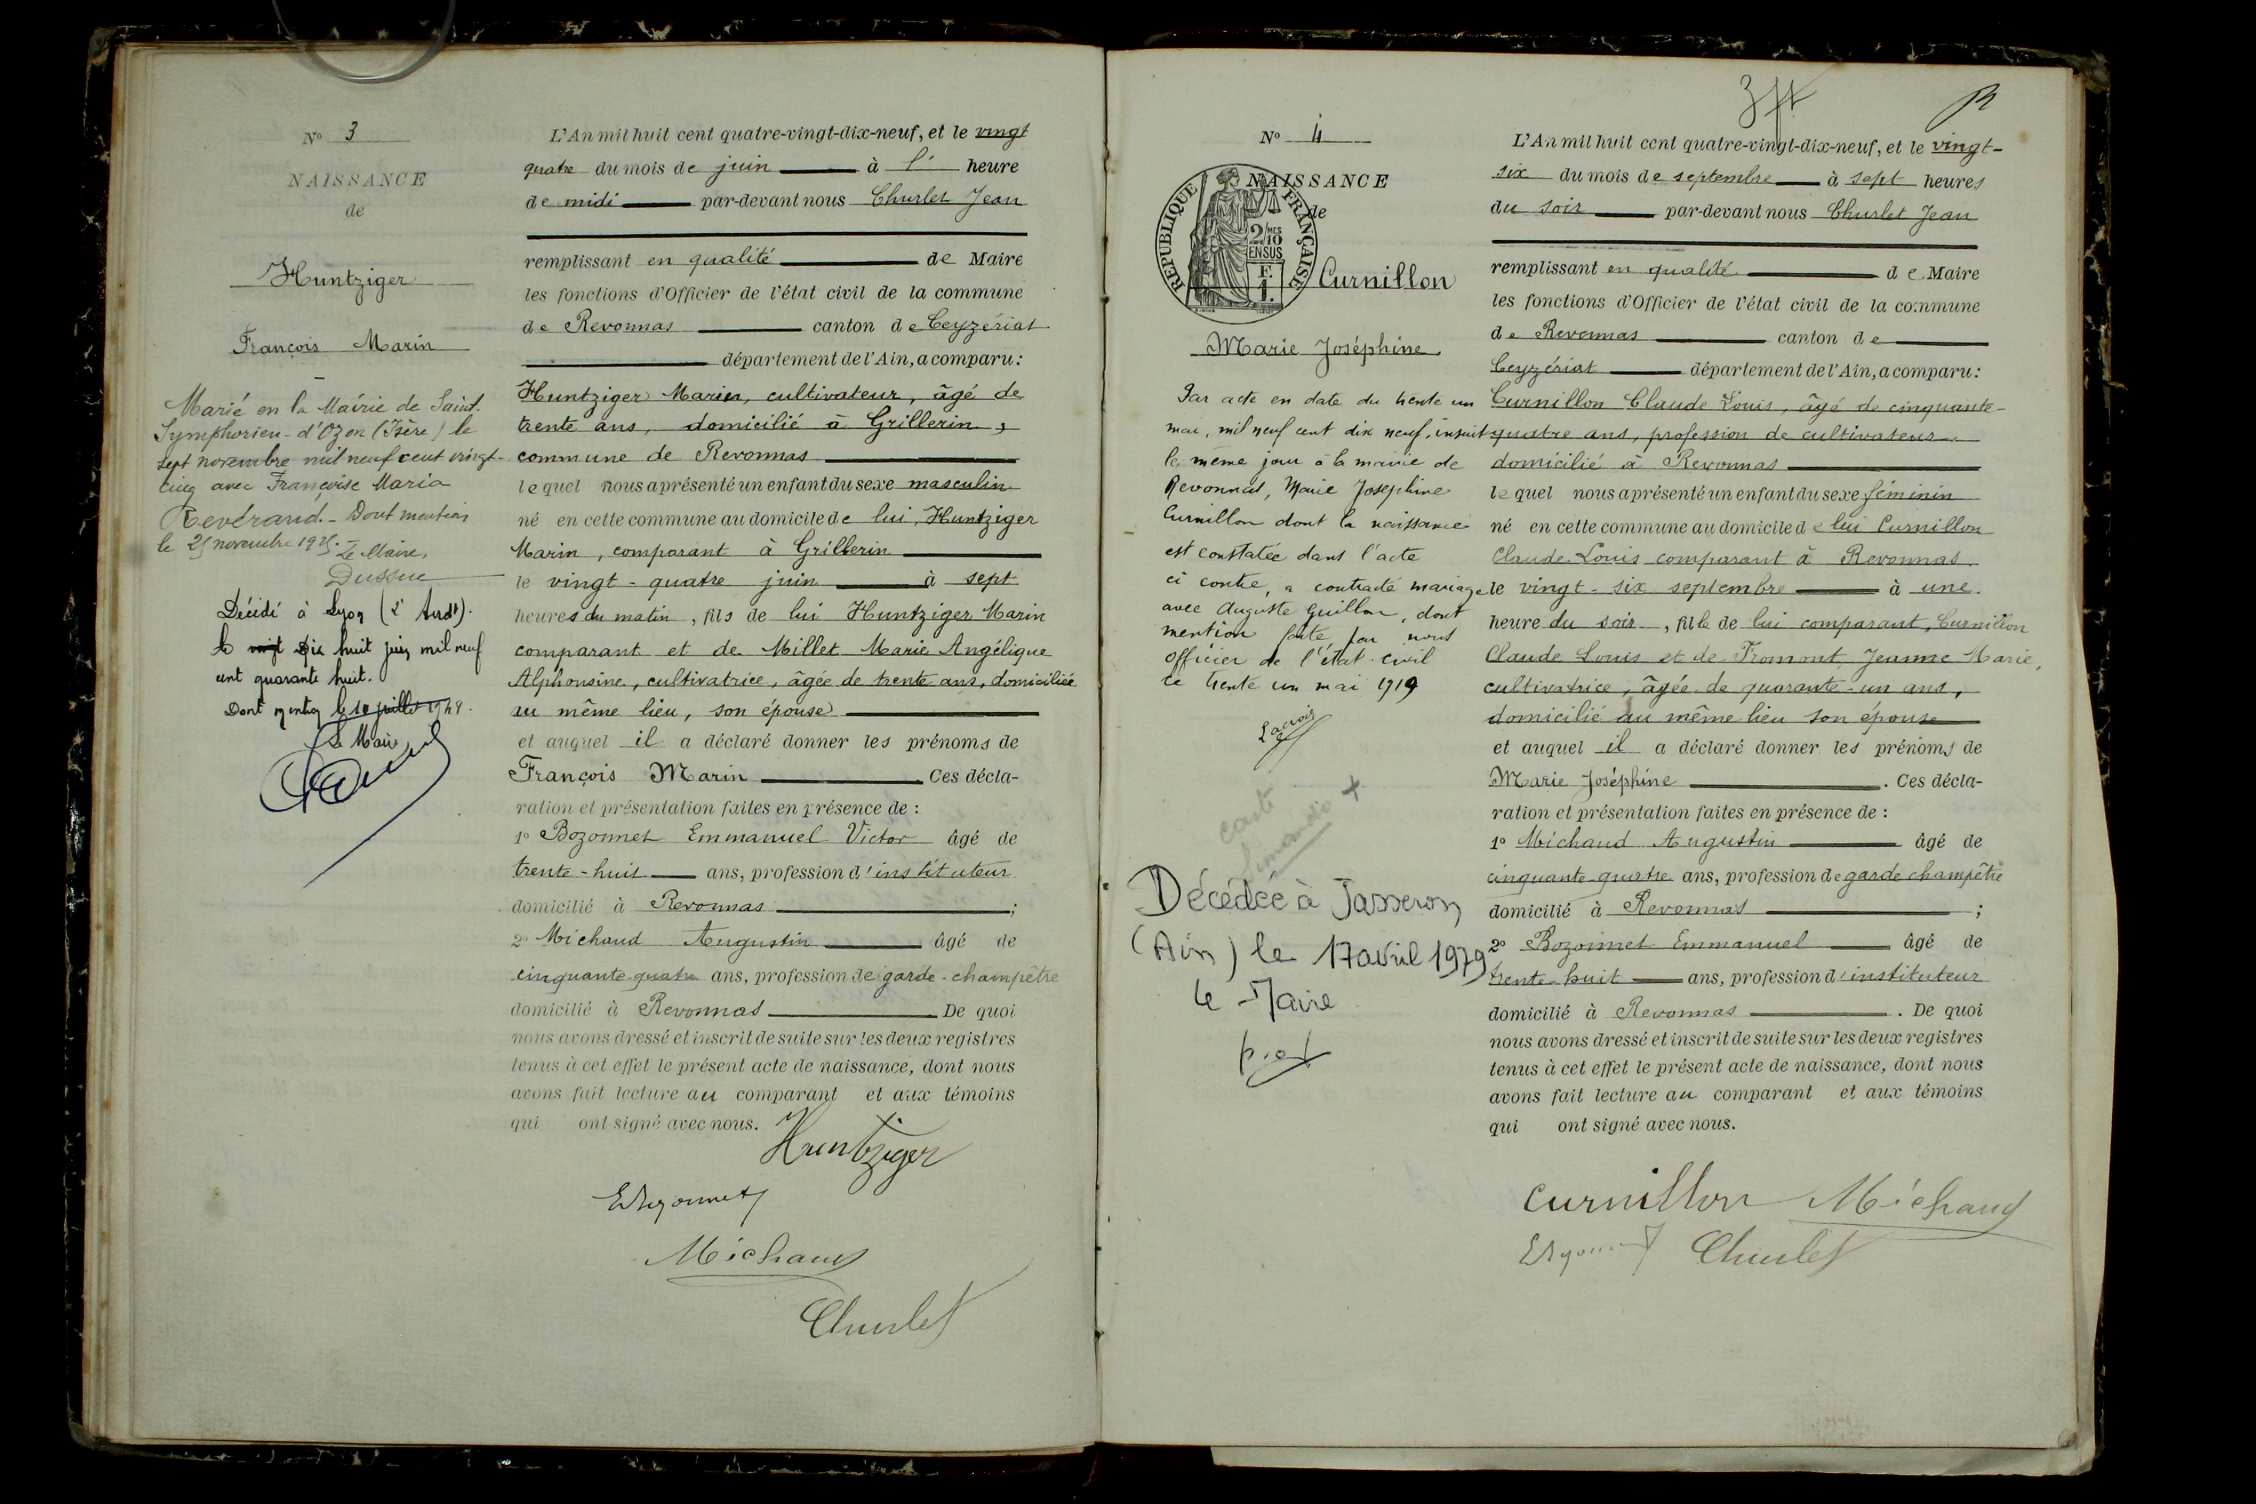 N° 3
NAISSANCE
de
Huntziger
François Marin
Marié en la Mairie de Saint-
Symphorien-d'Ozon (Isère) le
sept novembre mil neuf cent vingt-
cinq avec Françoise Maria
Revérand. - Dont mention
le 25 novembre 1925. Le Maire,
Dussuc
Décédé à Lyon (2e Arrdt).
le vingt Dix huit juin mil neuf
cent quarante huit.
Dont mention le 10 juillet 1948.
Le Maire
L'An mil huit cent quatre-vingt-dix-neuf, et le vingt
quatre du mois de juin à l' heure
de midi par-devant nous Churlet Jean
remplissant en qualité de Maire
les fonctions d'Officier de l'état civil de la commune
de Revonnas canton de Ceyzériat
département de l'Ain, a comparu:
Huntziger Marin, cultivateur, âgé de
trente ans, domicilié à Grillerin,
commune de Revonnas
lequel nous a présenté un enfant du sexe masculin
né en cette commune au domicile de lui, Huntziger
Marin, comparant à Grillerin
le vingt-quatre juin à sept
heures du matin, fils de lui Huntziger Marin
comparant et de Millet Marie Angélique
Alphonsine, cultivatrice, âgée de trente ans, domiciliée
au même lieu, son épouse
et auquel il a déclaré donner les prénoms de
François Marin Ces décla-
ration et présentation faites en présence de :
1° Bozonnet Emmanuel Victor âgé de
trente-huit ans, profession d'instituteur
domicilié à Revonnas ;
2° Michaud Augustin âgé de
cinquante quatre ans, profession de garde-champêtre
domicilié à Revonnas De quoi
nous avons dressé et inscrit de suite sur les deux registres
tenus à cet effet le présent acte de naissance, dont nous
avons fait lecture au comparant et aux témoins
qui ont signé avec nous.
Huntziger
EBozonnet
Michaud
Churlet
N° 4
NAISSANCE
de
RÉPUBLIQUE FRANÇAISE
2/10 MES
EN SUS
F.
1.
Curnillon
Marie Joséphine
Par acte en date du trente un
mai, mil neuf cent dix neuf, inscrit
le même jour à la mairie de
Revonnas, Marie Joséphine
Curnillon dont la naissance
est constatée dans l'acte
ci contre, a contracté mariage
avec Auguste Guillon, dont
mention faite par nous
officier de l'état civil
le trente un mai 1919
carte
+
Décédée à Jasseron
(Ain) le 17 avril 1979
Le Maire
L'An mil huit cent quatre-vingt-dix-neuf, et le vingt-
six du mois de septembre à sept heures
du soir par-devant nous Churlet Jean
remplissant en qualité de Maire
les fonctions d'Officier de l'état civil de la commune
de Revonnas canton de
Ceyzériat département de l'Ain, a comparu:
Curnillon Claude Louis, âgé de cinquante-
quatre ans, profession de cultivateur
domicilié à Revonnas
lequel nous a présenté un enfant du sexe féminin
né en cette commune au domicile de lui Curnillon
Claude Louis comparant à Revonnas
le vingt-six septembre à une
heure du soir, fille de lui comparant, Curnillon
Claude Louis et de Fromont Jeanne Marie,
cultivatrice, âgée de quarante-un ans,
domicilié au même lieu son épouse
et auquel il a déclaré donner les prénoms de
Marie Joséphine . Ces décla-
ration et présentation faites en présence de :
1° Michaud Augustin âgé de
cinquante-quatre ans, profession de garde champêtre
domicilié à Revonnas ;
2° Bozonnet Emmanuel âgé de
trente-huit ans, profession d'instituteur
domicilié à Revonnas . De quoi
nous avons dressé et inscrit de suite sur les deux registres
tenus à cet effet le présent acte de naissance, dont nous
avons fait lecture au comparant et aux témoins
qui ont signé avec nous.
Curnillon Michaud
EBozonnet Churlet